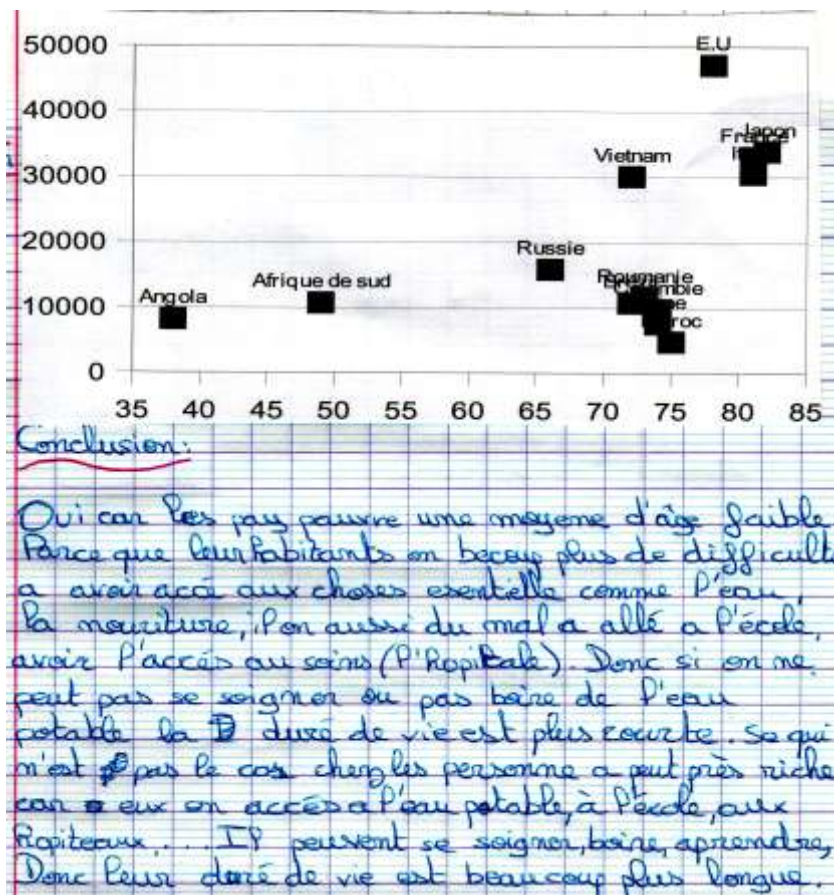 50000
E.U
40000
Japon
France
Vietnam
30000
20000
Russie
Afrique de sud
Roumanie
Angola
10000
0
35 40 45 50 55 60 65 70 75 80 85
Conclusion:
Oui car les pay pauvre une moyene d'âge faible
Parce que leur habitants on becoup plus de difficulté
a avoir accé aux choses esentielle comme l'eau,
la nouriture, il on aussi du mal a allé a l'école,
avoir l'accés au soins (l'hopitale). Donc si on ne
peut pas se soigner ou pas boire de l'eau
potable la duré de vie est plus courte. Se qui
n'est pas le cas chez les personne a peut près riche
car eux on accés a l'eau potable, à l'école, aux
hopiteaux.... Il peuvent se soigner, boire, aprendre,
Donc leur duré de vie est beaucoup plus longue.